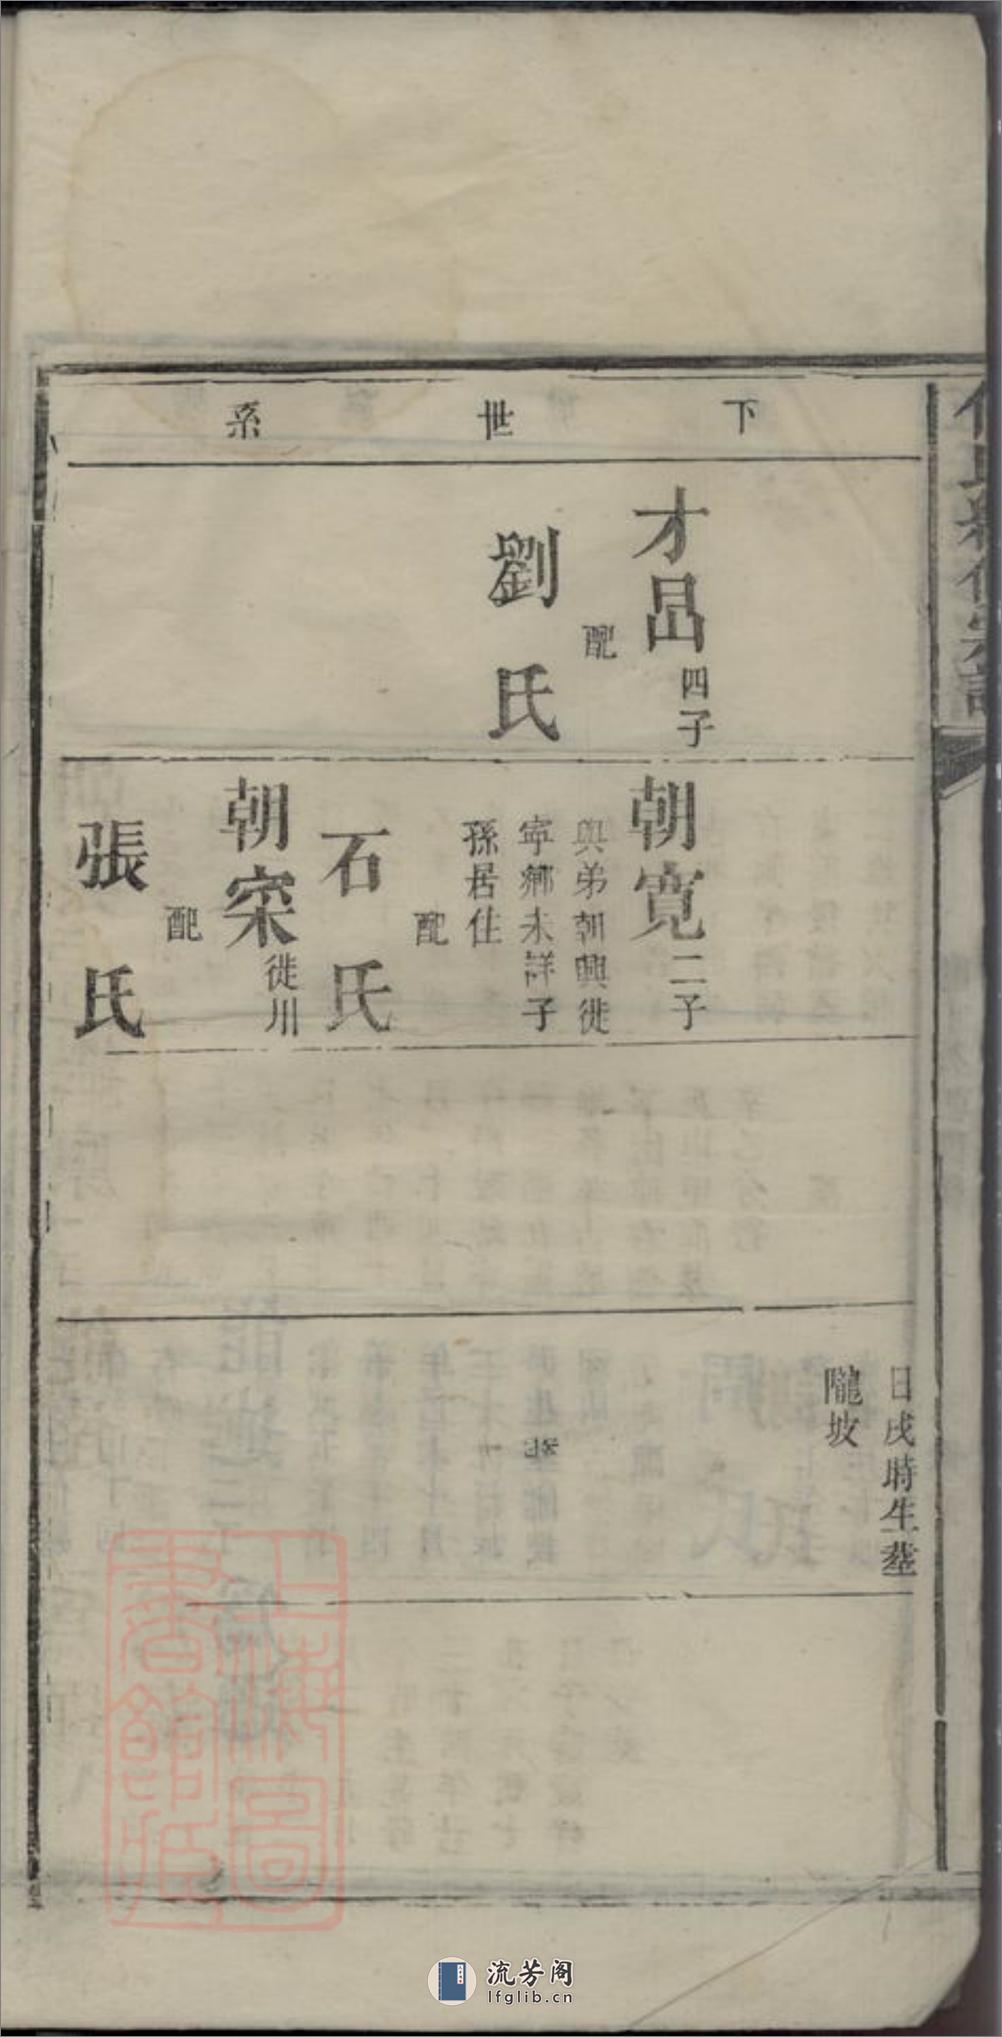 下世系
才昌四子
配
劉氏
朝寬二子
與弟朝興徙
寧鄉未詳子
孫居住
配
石氏
朝寀徙川
配
張氏
日戌時生塟
隴坡
上海圖書館藏
流芳阁
lfglib.cn